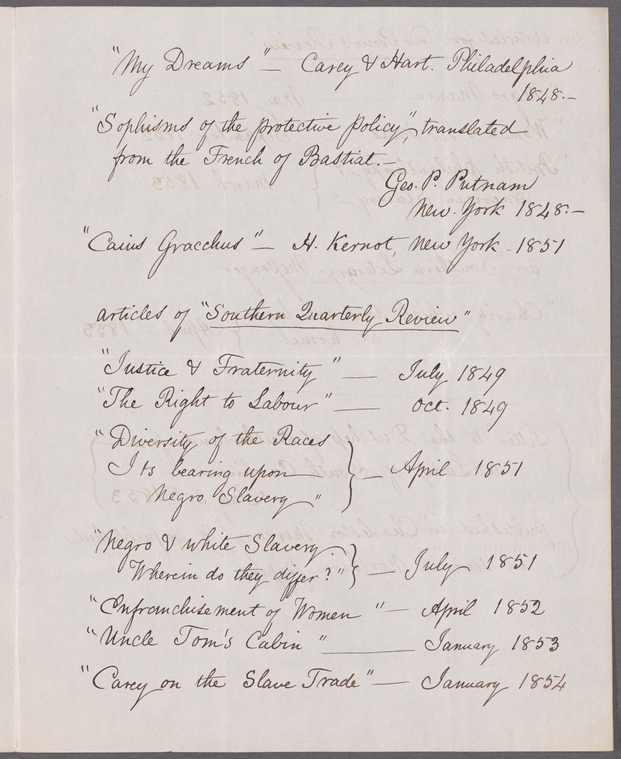 "My Dreams" — Carey & Hart. Philadelphia
1848.—
"Sophisms of the protective policy", translated
from the French of Bastiat.—
Geo. P. Putnam
New-York 1848.—
"Caius Gracchus" — H. Kernot, New York - 1851
articles of "Southern Quarterly Review"
"Justice & Fraternity" — July 1849
"The Right to Labour" — Oct. 1849
"Diversity of the Races
Its bearing upon — April 1851
Negro Slavery"
"Negro & white Slavery
Wherein do they differ?" — July 1851
"Enfranchisement of Women" — April 1852
"Uncle Tom's Cabin" — January 1853
"Carey on the Slave Trade" — January 1854